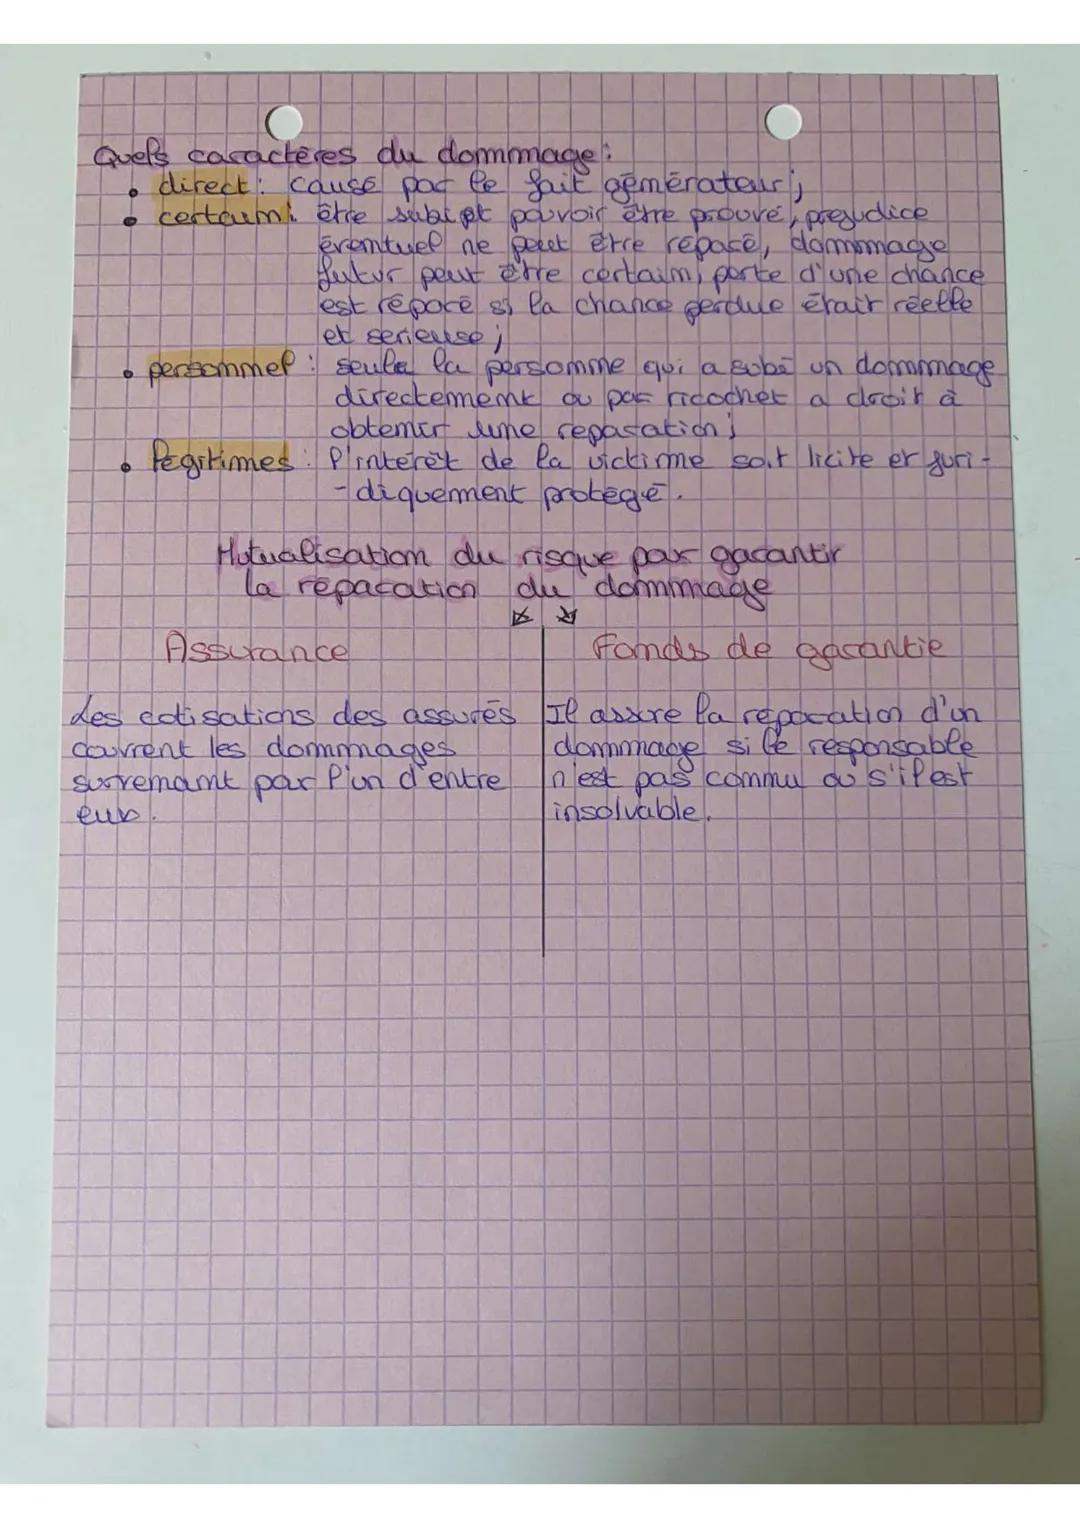 Quels caractères du dommage :
• direct : causé par le fait générateur ;
• certain : être subi et pouvoir être prouvé, prejudice
éventuel ne peut être réparé, dommage
futur peut être certain, perte d'une chance
est réparé si la chance perdue était réelle
et serieuse ;
• personnel : seule la personne qui a subi un dommage
directement ou par ricochet a droit à
obtenir une reparation ;
• légitimes : l'intérêt de la victime soit licite et juri-
-diquement protégé.
Mutualisation du risque pour garantir
la réparation du dommage
Assurance
Les cotisations des assurés
couvrent les dommages
survenant par l'un d'entre
eux.
Fonds de garantie
Il assure la réparation d'un
dommage si le responsable
n'est pas connu ou s'il est
insolvable.